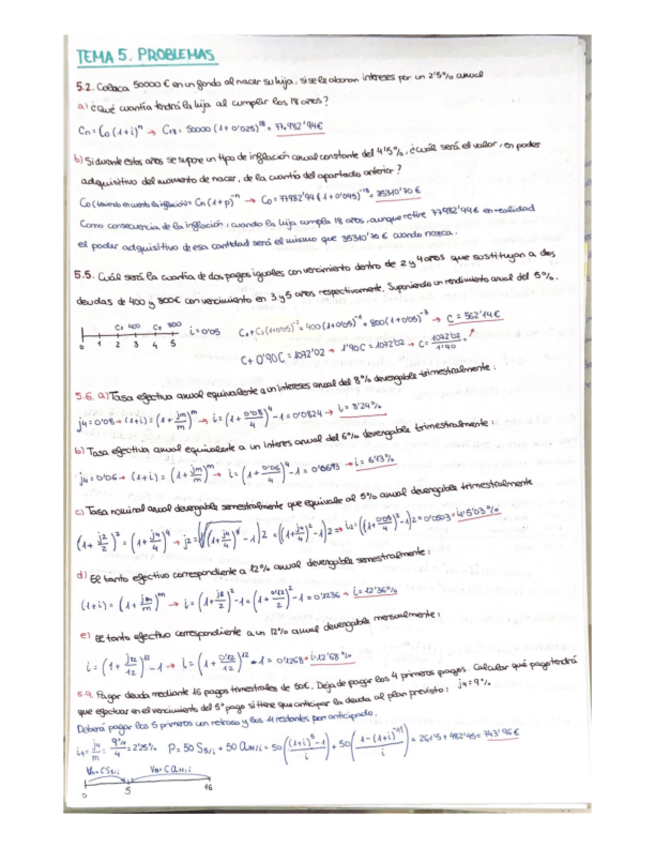 TEMA 5. PROBLEMAS
5.2. Coloca 50000 € en un fondo al nacer su hija, si se le abonan intereses por un 2'5% anual
a) ¿Qué cuantía tendrá la hija al cumplir los 18 años?
Cn = C0 (1+i)^n → C18 = 50000 (1+0'025)^18 = 77982'94€
b) Si durante estos años se supone un tipo de inflación anual constante del 4'5%, ¿cuál será el valor, en poder
adquisitivo del momento de nacer, de la cuantía del apartado anterior?
C0 (teniendo en cuenta la inflación) = Cn (1+p)^-n → C0 = 77982'94 (1+0'045)^-18 = 35310'70 €
Como consecuencia de la inflación, cuando la hija cumpla 18 años, aunque retire 77982'94€ en realidad
el poder adquisitivo de esa cantidad será el mismo que 35310'70 € cuando nazca.
5.5. Cuál será la cuantía de dos pagos iguales con vencimiento dentro de 2 y 4 años que sustituyan a dos
deudas de 400 y 800€ con vencimiento en 3 y 5 años respectivamente. Suponiendo un rendimiento anual del 5%.
C1 400 C2 800
0 1 2 3 4 5
i=0'05
C1 + C2 (1+0'05)^-2 = 400 (1+0'05)^-1 + 800 (1+0'05)^-3 → C = 562'14€
C + 0'90C = 1072'02 → 1'90C = 1072'02 → C = 1072'02/1'90 =
5.6. a) Tasa efectiva anual equivalente a un intereses anual del 8% devengable trimestralmente:
j4 = 0'08 → (1+i) = (1 + jm/m)^m → i = (1 + 0'08/4)^4 - 1 = 0'0824 → i = 8'24%
b) Tasa efectiva anual equivalente a un interes anual del 6% devengable trimestralmente:
j4 = 0'06 → (1+i) = (1 + jm/m)^m → i = (1 + 0'06/4)^4 - 1 = 0'0613 → i = 6'13%
c) Tasa nominal anual devengable semestralmente que equivale al 5% anual devengable trimestralmente
(1 + j2/2)^2 = (1 + j4/4)^4 → j2 = (√(1 + j4/4)^4 - 1) 2 = ((1 + j4/4)^2 - 1) 2 → i2 = ((1 + 0'05/4)^2 - 1) 2 = 0'0503 → i = 5'03%
d) El tanto efectivo correspondiente a 12% anual devengable semestralmente:
(1+i) = (1 + jm/m)^m → i = (1 + j2/2)^2 - 1 = (1 + 0'12/2)^2 - 1 = 0'1236 → i = 12'36%
e) El tanto efectivo correspondiente a un 12% anual devengable mensualmente:
i = (1 + j12/12)^12 - 1 → i = (1 + 0'12/12)^12 - 1 = 0'1268 → i = 12'68%
5.9. Pagar deuda mediante 16 pagos trimestrales de 50€. Deja de pagar los 4 primeros pagos. Calcular qué pago tendrá
que efectuar en el vencimiento del 5º pago si tiene que anticipar la deuda al plan previsto: j4 = 9%
Deberá pagar los 5 primeros con retraso y los 11 restantes por anticipado.
i4 = j4/4 = 9%/4 = 2'25% P = 50 S5/i + 50 a11/i = 50 ((1+i)^5 - 1 / i) + 50 (1 - (1+i)^-11 / i) = 261'5 + 482'45 = 743'96€
Vn = C S5/i V0 = C a11/i
0 5 16